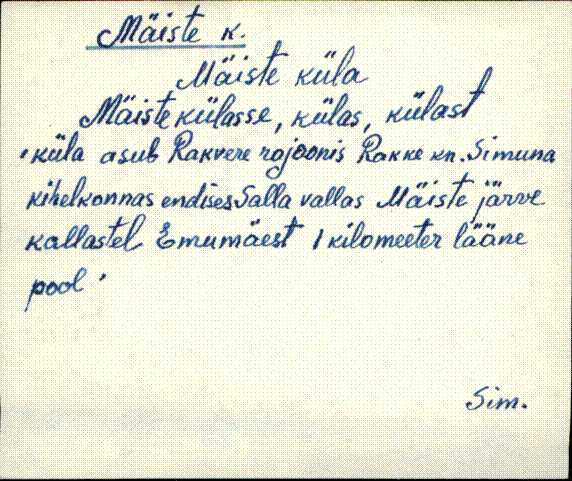 Mäiste k.
Mäiste küla
Mäiste külasse, külas, külast
'küla asub Rakvere rajoonis Rakke kn. Simuna
kihelkonnas endises Salla vallas Mäiste järve
kallastel Emumäest 1 kilomeeter lääne
pool'
Sim.